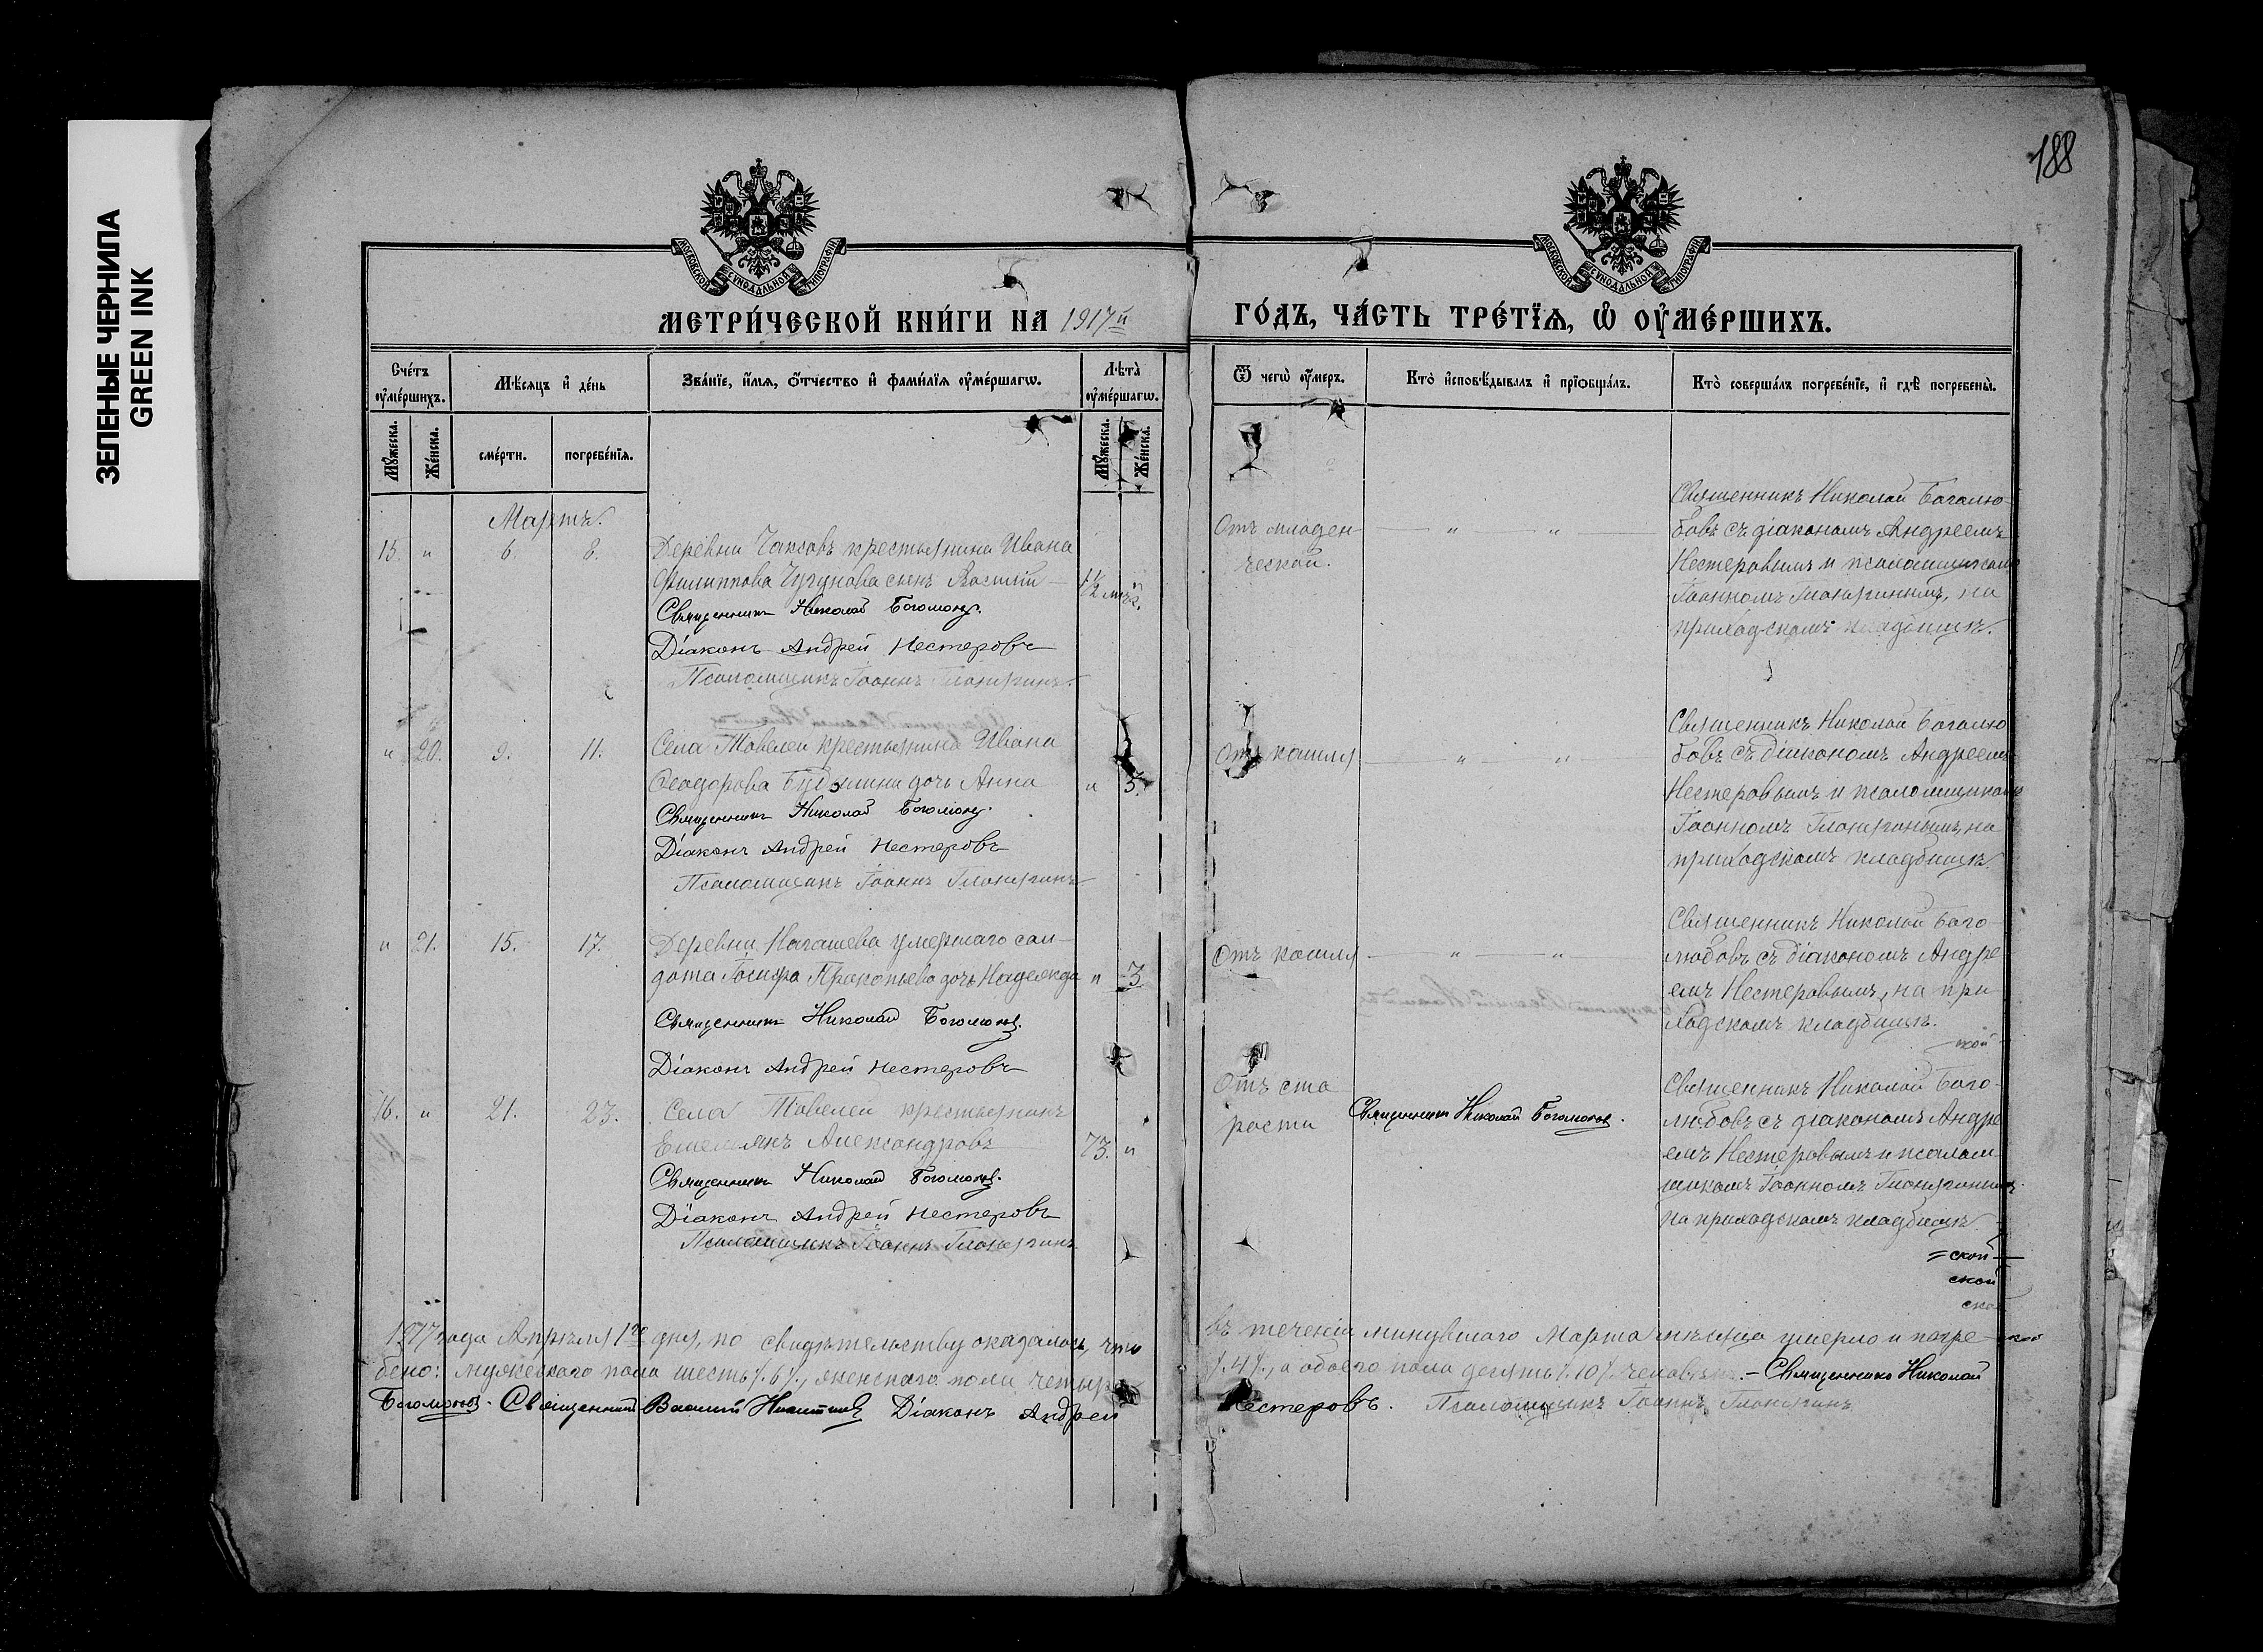 ЗЕЛЕНЫЕ ЧЕРНИЛА
GREEN INK
188
МОСКОВСКОЙ СѴНОДАЛЬНОЙ ТИПОГРАФІИ
МОСКОВСКОЙ СѴНОДАЛЬНОЙ ТИПОГРАФІИ
МЕТРИ́ЧЕСКОЙ КНИ́ГИ НА 1917й
ГО́ДЪ, ЧА́СТЬ ТРЕ́ТЇѦ, Ѽ ОУ҆МЕ́РШИХЪ.
Сче́тъ оу҆ме́ршихъ.
Мѣ́сѧцъ и҆ де́нь
Зва́нїе, и҆́мѧ, ѻ҆́тчество и҆ фами́лїѧ оу҆ме́ршагѡ.
Лѣ́та оу҆ме́ршагѡ.
Ѿ чегѡ̀ оу҆́меръ.
Кто̀ и҆сповѣ́дывалъ и҆ прїѡбща́лъ.
Кто̀ соверша́лъ погребе́нїе, и҆ гдѣ̀ погребены̀.
Мꙋ́жеска.
Же́нска.
сме́рти.
погребе́нїѧ.
Мꙋ́жеска.
Же́нска.
Мартъ.
15. " 6. 8.
Деревни Чаксовъ крестьянина Ивана
Филиппова Чугунова сынъ Василій
1 1/2 мѣс.
Священникъ Николай Боголюбовъ.
Діаконъ Андрей Нестеровъ
Псаломщикъ Іоаннъ
Отъ младен-
ческой.
Священникъ Николай Боголю-
бовъ съ діакономъ Андреемъ
Нестеровымъ и псаломщикомъ
Іоанномъ на
приходскомъ кладбищѣ.
" 20. 9. 11.
Села Тавелей крестьянина Ивана
Ѳеодорова дочь Анна " 5.
Священникъ Николай Боголюбовъ.
Діаконъ Андрей Нестеровъ
Псаломщикъ Іоаннъ
Отъ кашля
Священникъ Николай Боголю-
бовъ съ діакономъ Андреемъ
Нестеровымъ и псаломщикомъ
Іоанномъ на
приходскомъ кладбищѣ.
" 21. 15. 17.
Деревни умершаго сол-
дата Іосифа Прокопьева дочь Надежда " 3.
Священникъ Николай Боголюбовъ.
Діаконъ Андрей Нестеровъ
Отъ кашля
Священникъ Николай Бого-
любовъ съ діакономъ Андре
емъ Нестеровымъ, на при
ходскомъ кладбищѣ.
16. " 21. 23.
Села Тавелей крестьянинъ
Емельянъ Александровъ 73. "
Священникъ Николай Боголюбовъ.
Діаконъ Андрей Нестеровъ
Псаломщикъ Іоаннъ
Отъ ста
рости
Священникъ Николай Боголюбовъ.
Священникъ Николай Бого-
любовъ съ діакономъ Андре
емъ Нестеровымъ и псалом
щикомъ Іоанномъ
на приходскомъ кладбищѣ.
=ской
ской
1917 года Апрѣля 1го дня, по свидѣтельству оказалось, что
въ теченіи минувшаго Марта мѣсяца умерло и погре-
бено: мужескаго пола шесть /.6/., женскаго пола четыре
/.4/., а обоего пола десять /.10/. человѣкъ. – Священникъ Николай
Боголюбовъ. Священникъ Василій Діаконъ Андрей
Нестеровъ. Псаломщикъ Іоаннъ